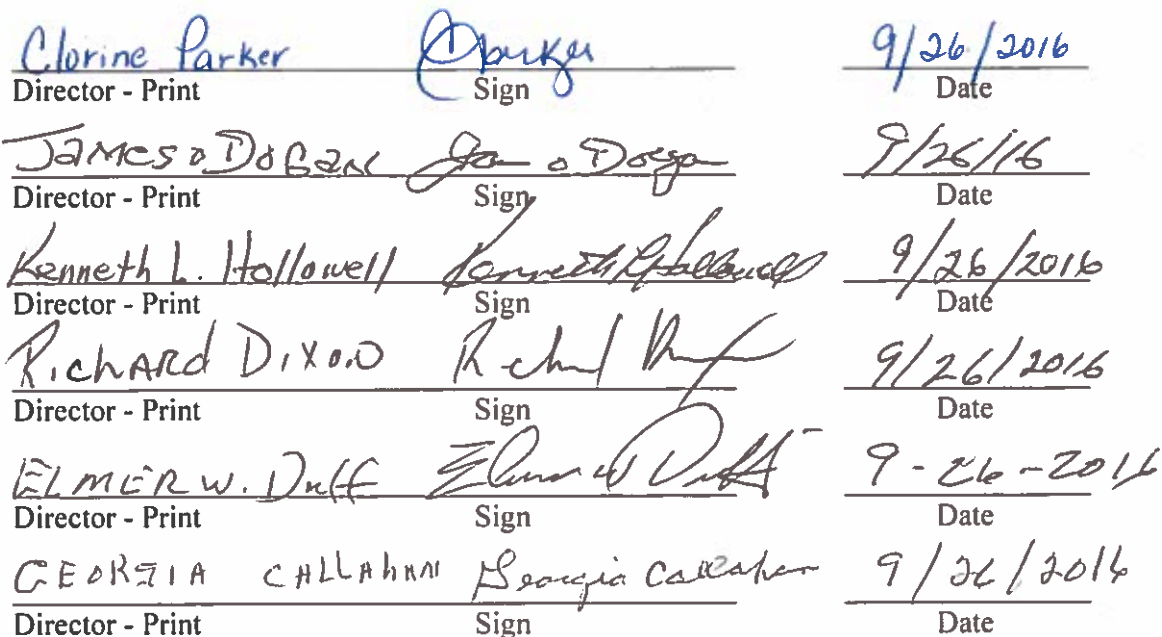 Clorine Parker CParker 9/26/2016
Director - Print Sign Date
James O Dogan James O Dogan 9/26/16
Director - Print Sign Date
Kenneth L. Hollowell Kenneth L Hollowell 9/26/2016
Director - Print Sign Date
RichARd DixoN Richard 9/26/2016
Director - Print Sign Date
ELMER W. Duff Elmer W Duff 9-26-2016
Director - Print Sign Date
GEORGIA CALLAhAN Georgia Callahan 9/26/2016
Director - Print Sign Date